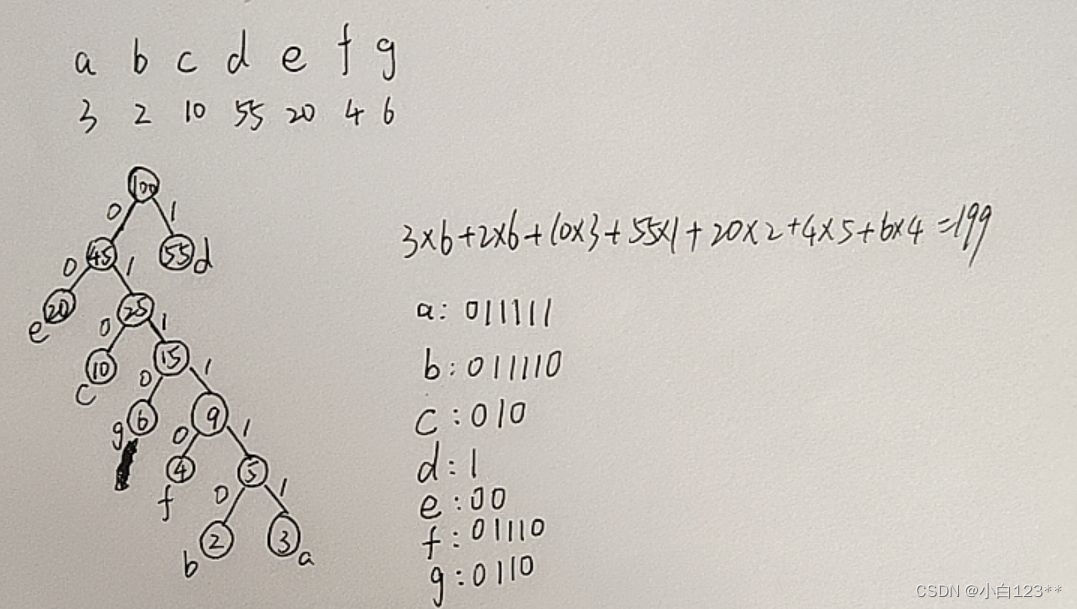 a b c d e f g
3 2 10 55 20 4 6
100
0 1
45 55 d
0 1
20 25
e 0 1
10 15
c 0 1
g 6 9
0 1
4 5
f 0 1
2 3
b a
3×6+2×6+10×3+55×1+20×2+4×5+6×4=199
a: 011111
b: 011110
c: 010
d: 1
e: 00
f: 01110
g: 0110
CSDN @小白123**